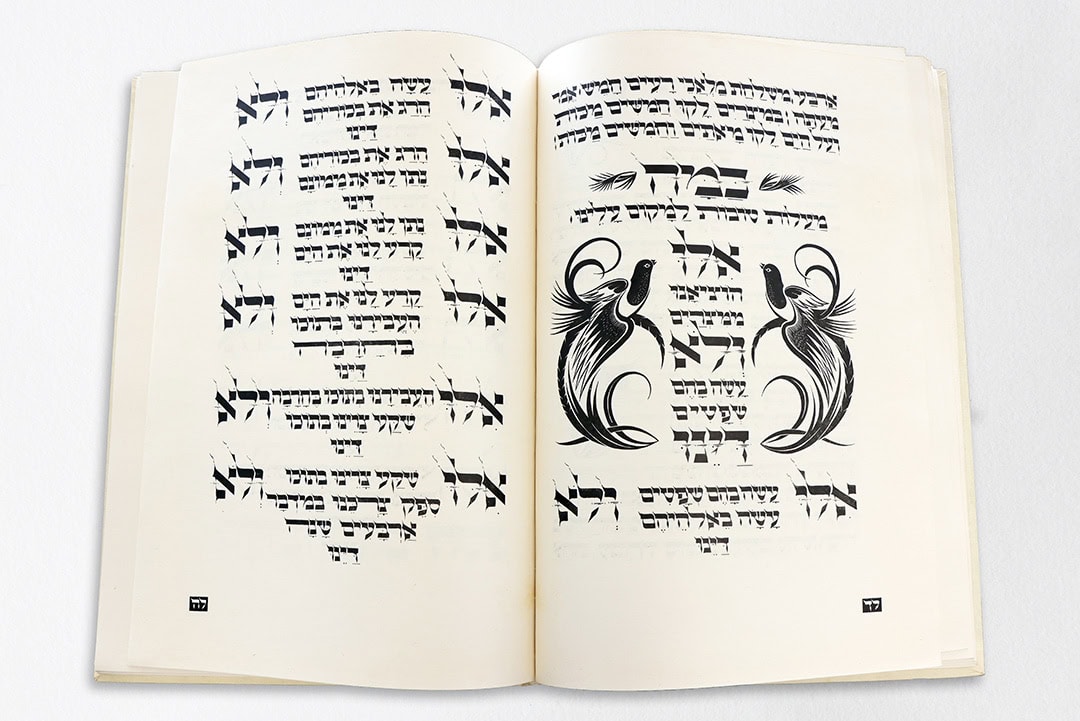 אַרְבַּע מִשְׁלַחַת מַלְאֲכֵי רָעִים חָמֵשׁ אֱמֹר
מֵעַתָּה וּבְמִצְרַיִם לָקוּ חֲמִשִּׁים מַכּוֹת
וְעַל הַיָּם לָקוּ מָאתַיִם וַחֲמִשִּׁים מַכּוֹת׃
כַּמָּה
מַעֲלוֹת טוֹבוֹת לַמָּקוֹם עָלֵינוּ׃
אִלּוּ
הוֹצִיאָנוּ
מִמִּצְרַיִם
וְלֹא
עָשָׂה בָהֶם
שְׁפָטִים
דַּיֵּנוּ
אִלּוּ עָשָׂה בָהֶם שְׁפָטִים וְלֹא
עָשָׂה בֵאלֹהֵיהֶם
דַּיֵּנוּ
לד
אִלּוּ עָשָׂה בֵאלֹהֵיהֶם וְלֹא
הָרַג אֶת בְּכוֹרֵיהֶם
דַּיֵּנוּ
אִלּוּ הָרַג אֶת בְּכוֹרֵיהֶם וְלֹא
נָתַן לָנוּ אֶת מָמוֹנָם
דַּיֵּנוּ
אִלּוּ נָתַן לָנוּ אֶת מָמוֹנָם וְלֹא
קָרַע לָנוּ אֶת הַיָּם
דַּיֵּנוּ
אִלּוּ קָרַע לָנוּ אֶת הַיָּם וְלֹא
הֶעֱבִירָנוּ בְתוֹכוֹ
בֶּחָרָבָה
דַּיֵּנוּ
אִלּוּ הֶעֱבִירָנוּ בְתוֹכוֹ בֶּחָרָבָה וְלֹא
שִׁקַּע צָרֵינוּ בְּתוֹכוֹ
דַּיֵּנוּ
אִלּוּ שִׁקַּע צָרֵינוּ בְּתוֹכוֹ וְלֹא
סִפֵּק צָרְכֵּנוּ בַּמִּדְבָּר
אַרְבָּעִים שָׁנָה
דַּיֵּנוּ
לה